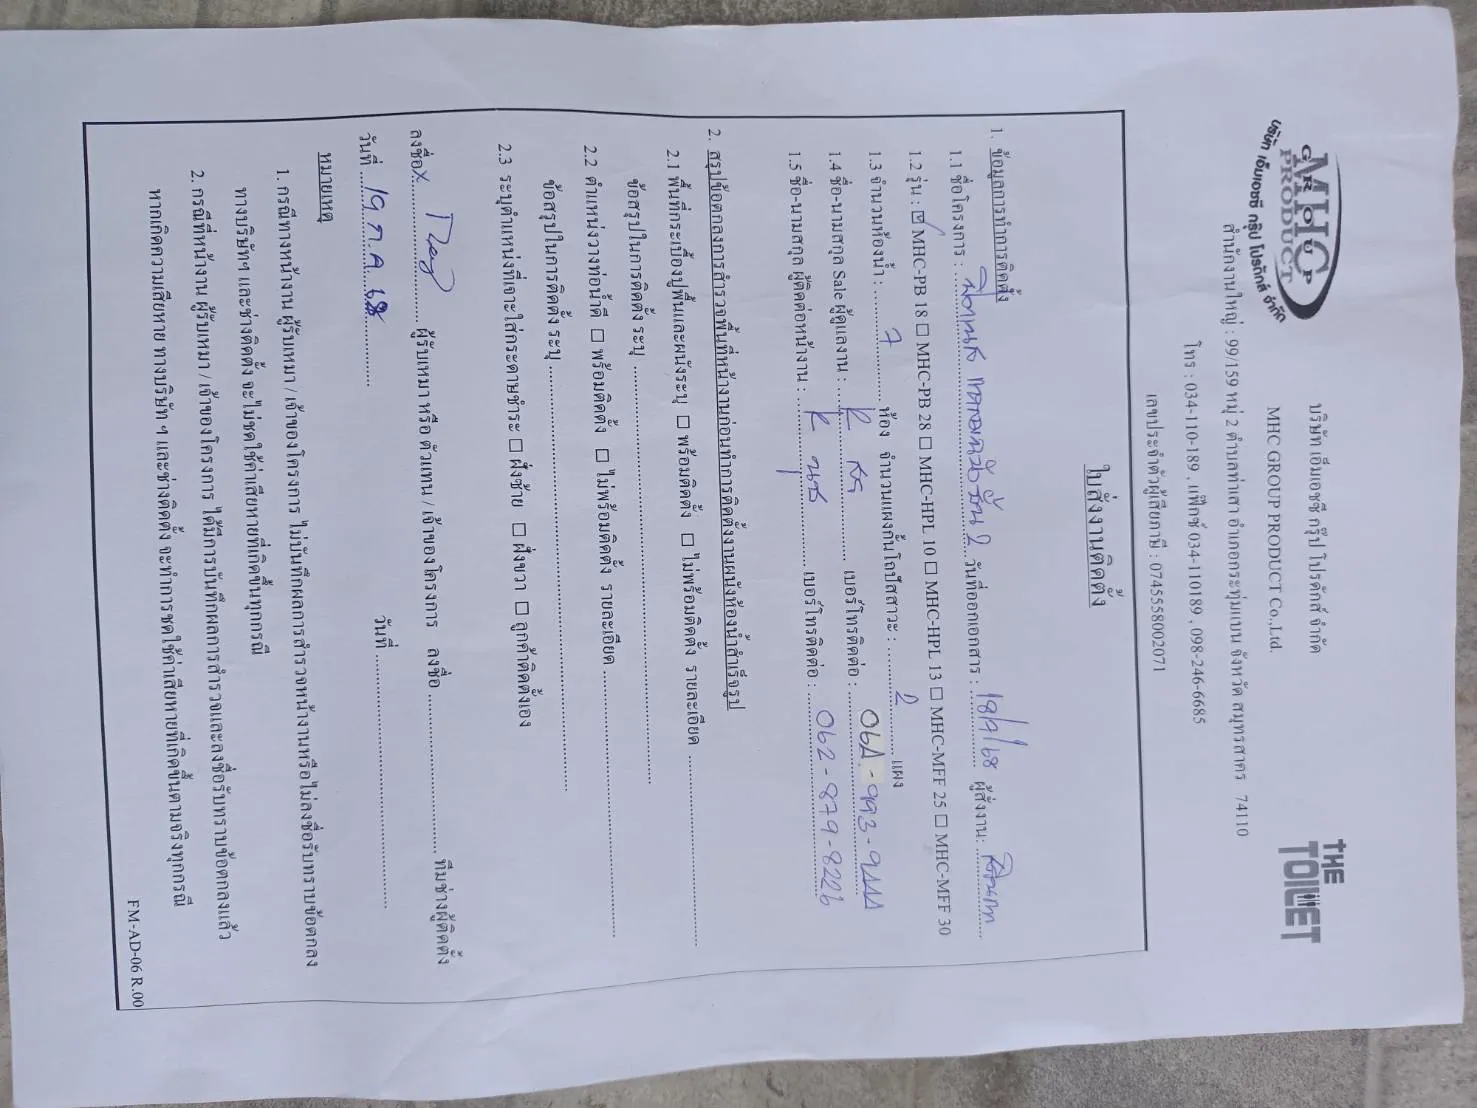 MHC
GROUP
PRODUCT
บริษัท เอ็มเอชซี กรุ๊ป โปรดักส์ จำกัด
THE
TOILET
บริษัท เอ็มเอชซี กรุ๊ป โปรดักส์ จำกัด
MHC GROUP PRODUCT Co.,Ltd.
สำนักงานใหญ่ : 99/159 หมู่ 2 ตำบลท่าเสา อำเภอกระทุ่มแบน จังหวัด สมุทรสาคร 74110
โทร : 034-110-189 , แฟ็กซ์ 034-110189 , 098-246-6685
เลขประจำตัวผู้เสียภาษี : 0745558002071
ใบสั่งงานติดตั้ง
1. ข้อมูลการทำการติดตั้ง
1.1 ชื่อโครงการ : ชั้น 2 วันที่ออกเอกสาร : 18/7/68 ผู้สั่งงาน:
1.2 รุ่น : ☑ MHC-PB 18 ☐ MHC-PB 28 ☐ MHC-HPL 10 ☐ MHC-HPL 13 ☐ MHC-MFF 25 ☐ MHC-MFF 30
1.3 จำนวนห้องน้ำ : 7 ห้อง จำนวนแผงกั้นโถปัสสาวะ : 2 แผง
1.4 ชื่อ-นามสกุล Sale ผู้ดูแลงาน : เบอร์โทรติดต่อ :
1.5 ชื่อ-นามสกุล ผู้ติดต่อหน้างาน : K นุช เบอร์โทรติดต่อ : 062-879-8226
2. สรุปข้อตกลงการสำรวจพื้นที่หน้างานก่อนทำการติดตั้งงานผนังห้องน้ำสำเร็จรูป
2.1 พื้นที่กระเบื้องปูพื้นและผนังระบุ ☐ พร้อมติดตั้ง ☐ ไม่พร้อมติดตั้ง รายละเอียด
ข้อสรุปในการติดตั้ง ระบุ
2.2 ตำแหน่งวางท่อน้ำดี ☐ พร้อมติดตั้ง ☐ ไม่พร้อมติดตั้ง รายละเอียด
ข้อสรุปในการติดตั้ง ระบุ
2.3 ระบุตำแหน่งที่เจาะใส่กระดาษชำระ ☐ ฝั่งซ้าย ☐ ฝั่งขวา ☐ ลูกค้าติดตั้งเอง
ลงชื่อx ผู้รับเหมา หรือ ตัวแทน / เจ้าของโครงการ ลงชื่อ ทีมช่างผู้ติดตั้ง
วันที่ 19 ก.ค. 68 วันที่
หมายเหตุ
1. กรณีทางหน้างาน ผู้รับเหมา / เจ้าของโครงการ ไม่บันทึกผลการสำรวจหน้างานหรือไม่ลงชื่อรับทราบข้อตกลง
ทางบริษัทฯ และช่างติดตั้ง จะไม่ชดใช้ค่าเสียหายที่เกิดขึ้นทุกกรณี
2. กรณีที่หน้างาน ผู้รับเหมา / เจ้าของโครงการ ได้มีการบันทึกผลการสำรวจและลงชื่อรับทราบข้อตกลงแล้ว
หากเกิดความเสียหาย ทางบริษัท ฯ และช่างติดตั้ง จะทำการชดใช้ค่าเสียหายที่เกิดขึ้นตามจริงทุกกรณี
FM-AD-06 R.00